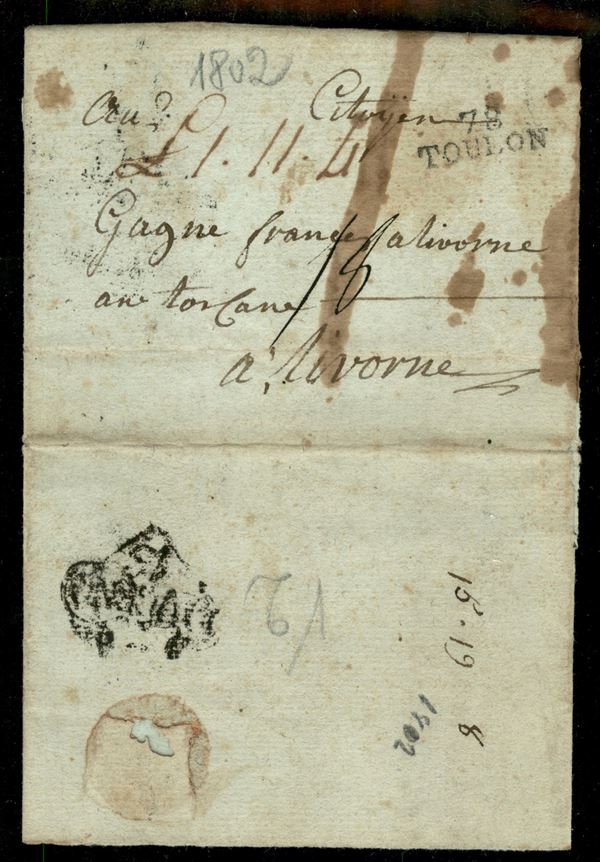 1802
Au Citoyen
78
TOULON
£ 1.11.4
Gagne français a livorne
18
an toscane
a livorne
15.19 8
1802